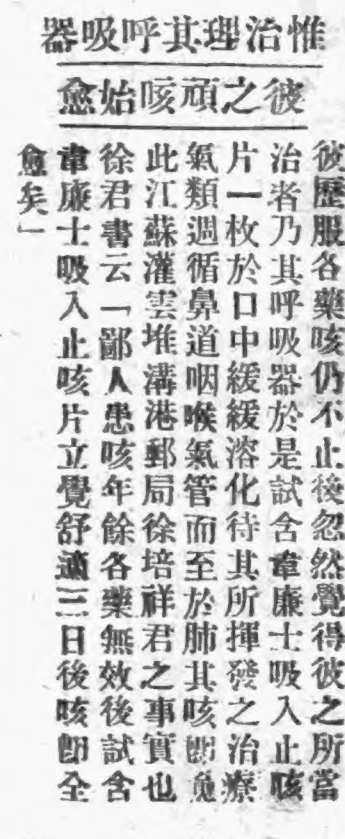 惟治理其呼吸器
彼之頑咳始愈
彼歷服各藥咳仍不止後忽然覺得彼之所當
治者乃其呼吸器於是試含韋廉士吸入止咳
片一枚於口中緩緩溶化待其所揮發之治療
氣類週循鼻道咽喉氣管而至於肺其咳卽愈
此江蘇灌雲堆溝港郵局徐培祥君之事實也
徐君書云「鄙人患咳年餘各藥無效後試含
韋廉士吸入止咳片立覺舒適三日後咳卽全
愈矣」